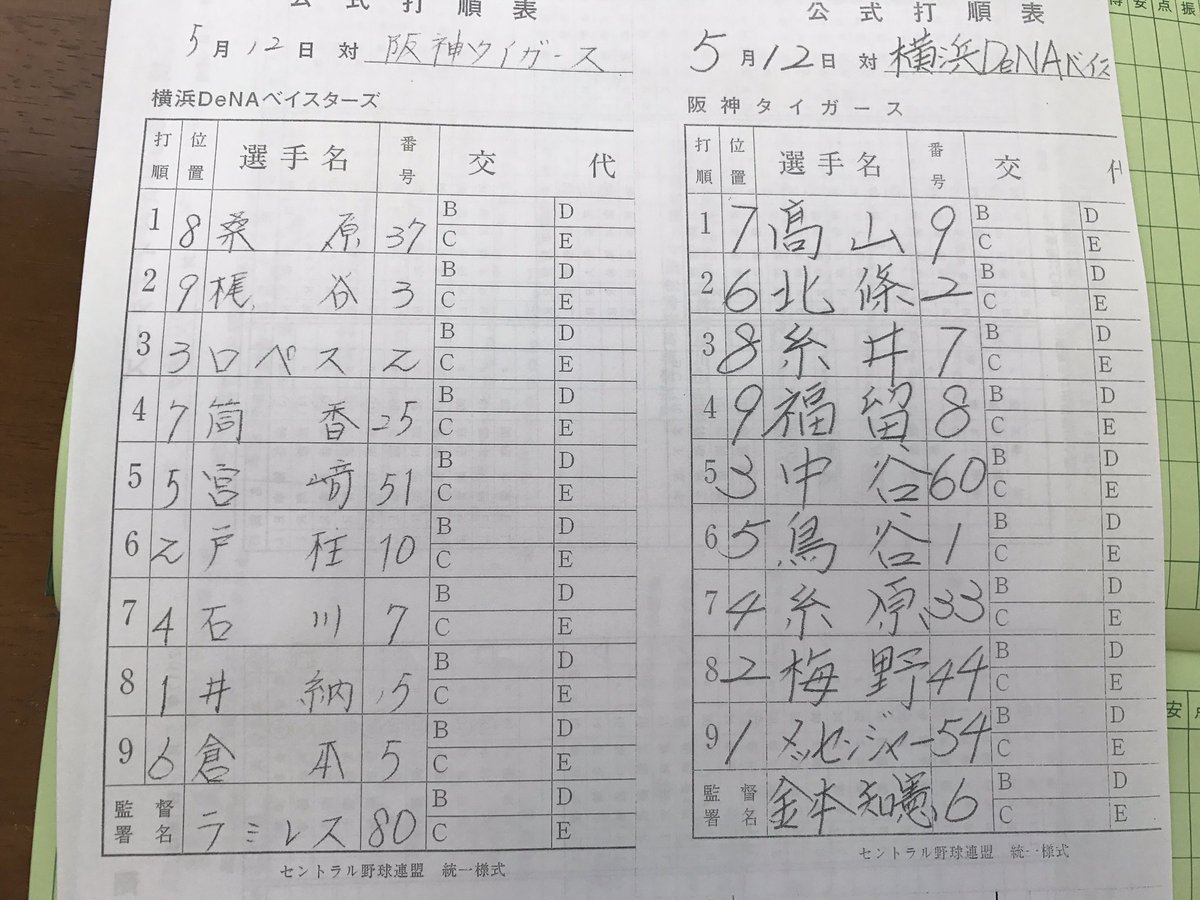 公式打順表
5月12日 対 阪神タイガース
横浜DeNAベイスターズ
打順 位置 選手名 番号 交代
1 8 桑原 37 B D C E
2 9 梶谷 3 B D C E
3 3 ロペス 2 B D C E
4 7 筒香 25 B D C E
5 5 宮﨑 51 B D C E
6 2 戸柱 10 B D C E
7 4 石川 7 B D C E
8 1 井納 15 B D C E
9 6 倉本 5 B D C E
監督署名 ラミレス 80 B D C E
セントラル野球連盟 統一様式
公式打順表
5月12日 対 横浜DeNAベイス
阪神タイガース
打順 位置 選手名 番号 交代
1 7 髙山 9 B D C E
2 6 北條 2 B D C E
3 8 糸井 7 B D C E
4 9 福留 8 B D C E
5 3 中谷 60 B D C E
6 5 鳥谷 1 B D C E
7 4 糸原 33 B D C E
8 2 梅野 44 B D C E
9 1 メッセンジャー 54 B D C E
監督署名 金本知憲 6 B D C E
セントラル野球連盟 統一様式
安点振
安点